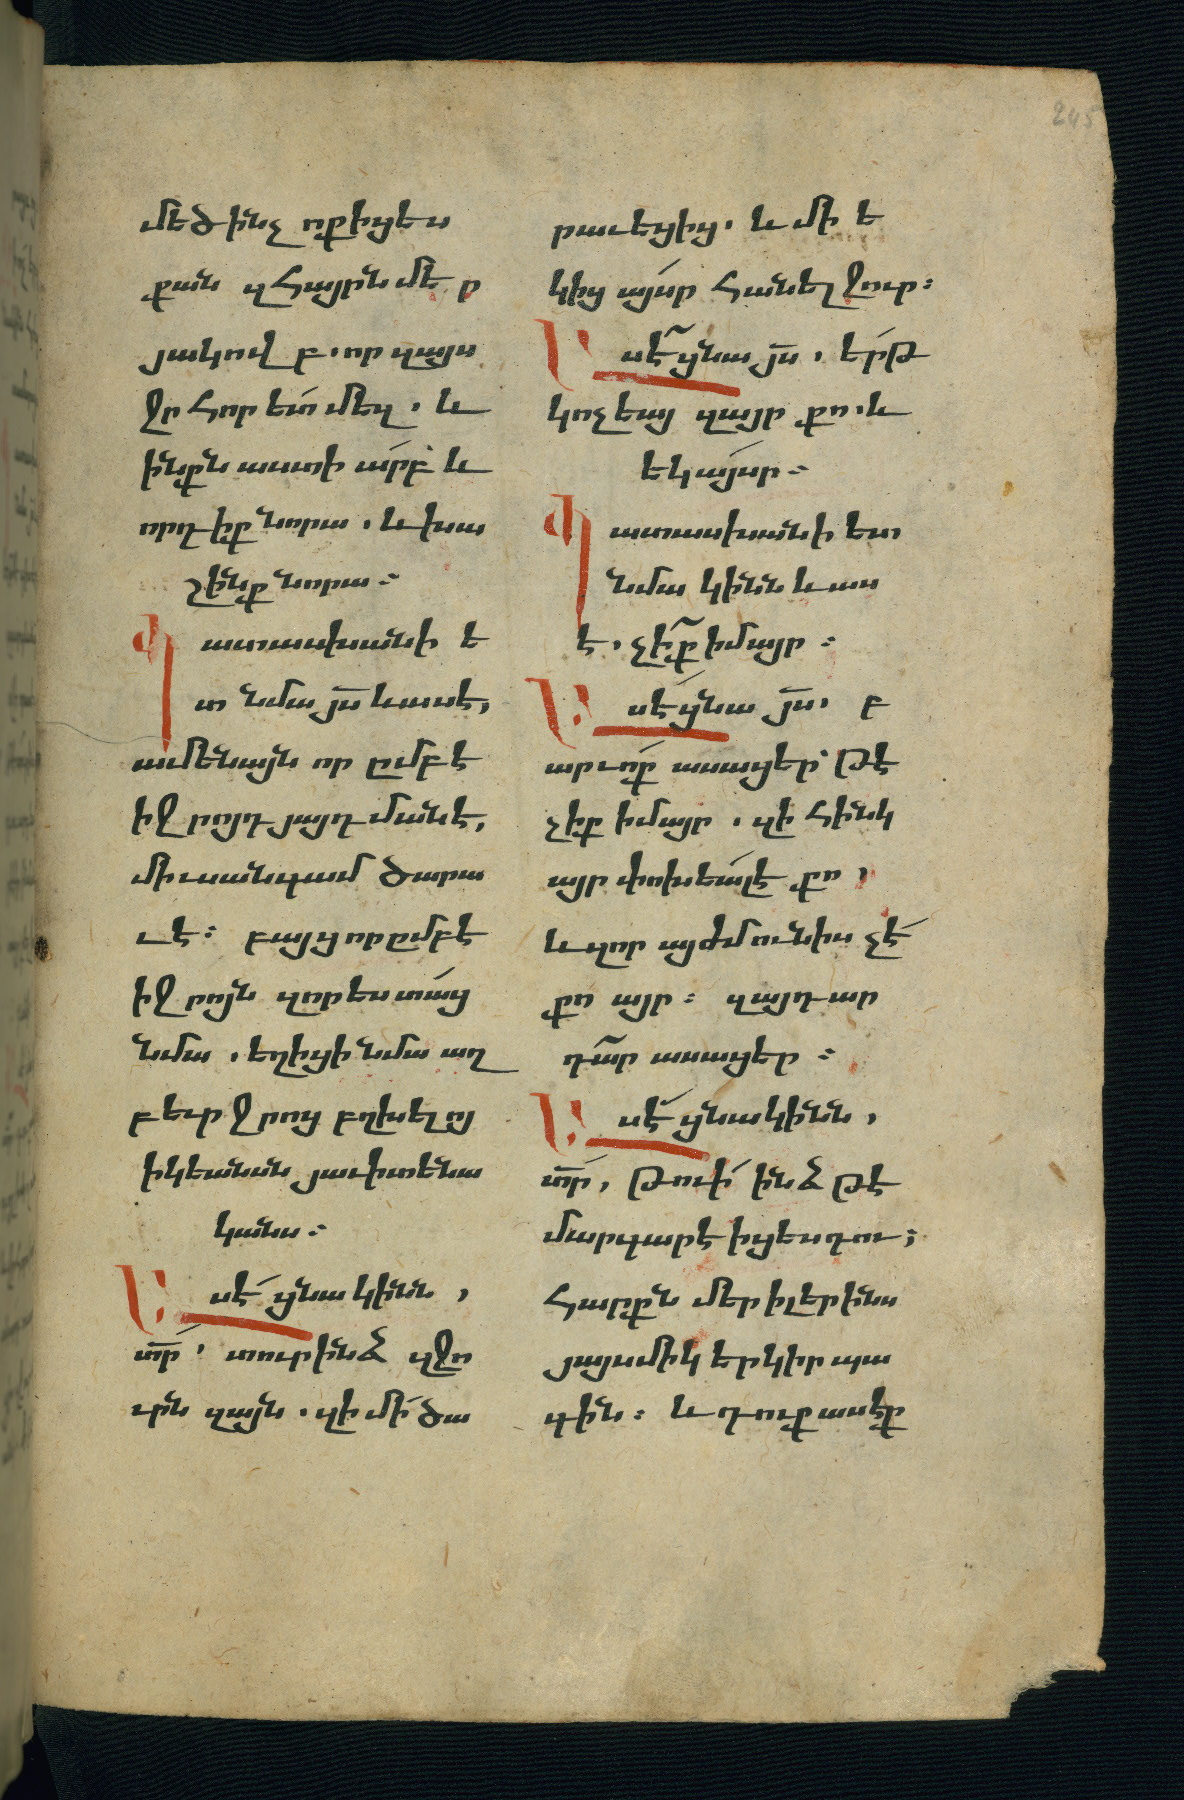 245
մեծ ինչ ոք իցես
քան զհայրն մեր
յակովբ. որ զայս
ջր հոր ետ մեզ. և
ինքն աստի արբ և
որդիք նորա. և խա
շինք նորա։
Պատասխանի ե
տ նմա յս և ասէ,
ամենայն որ ըմբէ
ի ջրոյդ յայդմանէ,
միւսանգամ ծարա
ւէ։ բայց որ ըմբէ
ի ջրոյն զոր ես տաց
նմա. եղիցի նմա աղ
բեւր ջրոյ բղխելոյ
ի կեանսն յաւիտենա
կանս։
Ասէ ցնա կինն,
տր՛ տուր ինձ զջո
ւրն զայն. զի մի ծա
րաւեցից. և մի ե
կից այսր հանել ջուր։
Ասէ ցնա յս, երթ
կոչեա զայր քո. և
եկ այսր։
Պատասխանի ետ
նմա կինն և աս
է. չիք իմ այր։
Ասէ ցնա յս. բ
արւոք ասացեր՝ թէ
չիք իմ այր. զի հինգ
այր փոխեալ է քո,
և զոր այժմ ունիս չէ
քո այր։ զայդ ար
դար ասացեր։
Ասէ ցնա կինն,
տր, թուի ինձ թէ
մարգարէ իցես դու;
Հարքն մեր ի լերինս
յայսմիկ երկիր պա
գին։ և դուք ասէք